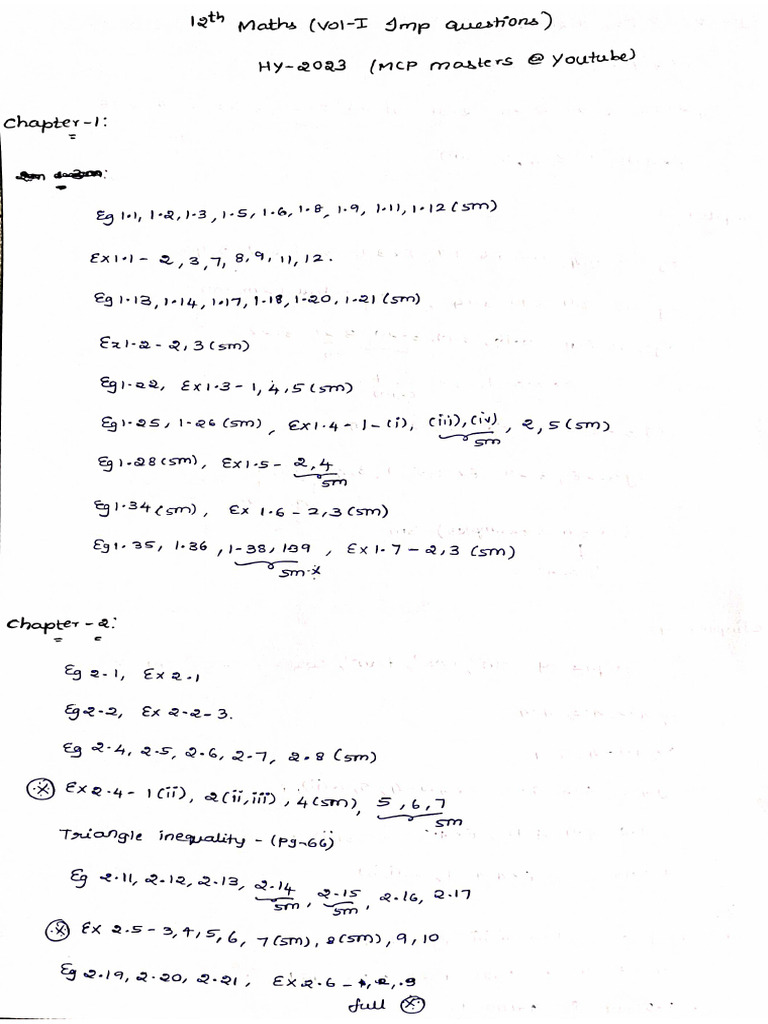 12th Maths (Vol-I Imp Questions)
HY-2023 (MCP masters @ Youtube)
Chapter-1:
Eg 1.1, 1.2, 1.3, 1.5, 1.6, 1.8, 1.9, 1.11, 1.12 (5m)
Ex 1.1 - 2, 3, 7, 8, 9, 11, 12.
Eg 1.13, 1.14, 1.17, 1.18, 1.20, 1.21 (5m)
Ex 1.2 - 2, 3 (5m)
Eg 1.22, Ex 1.3 - 1, 4, 5 (5m)
Eg 1.25, 1.26 (5m), Ex 1.4 - 1 - (i), (iii), (iv), 2, 5 (5m)
5m
Eg 1.28 (5m), Ex 1.5 - 2, 4
5m
Eg 1.34 (5m), Ex 1.6 - 2, 3 (5m)
Eg 1.35, 1.36, 1.38, 1.39, Ex 1.7 - 2, 3 (5m)
5m.*
Chapter - 2:
Eg 2.1, Ex 2.1
Eg 2.2, Ex 2.2 - 3.
Eg 2.4, 2.5, 2.6, 2.7, 2.8 (5m)
Ex 2.4 - 1 (ii), 2 (ii, iii), 4 (5m), 5, 6, 7
5m
Triangle inequality - (Pg-66)
Eg 2.11, 2.12, 2.13, 2.14, 2.15, 2.16, 2.17
5m 5m
Ex 2.5 - 3, 4, 5, 6, 7 (5m), 8 (5m), 9, 10
Eg 2.19, 2.20, 2.21, Ex 2.6 -
full